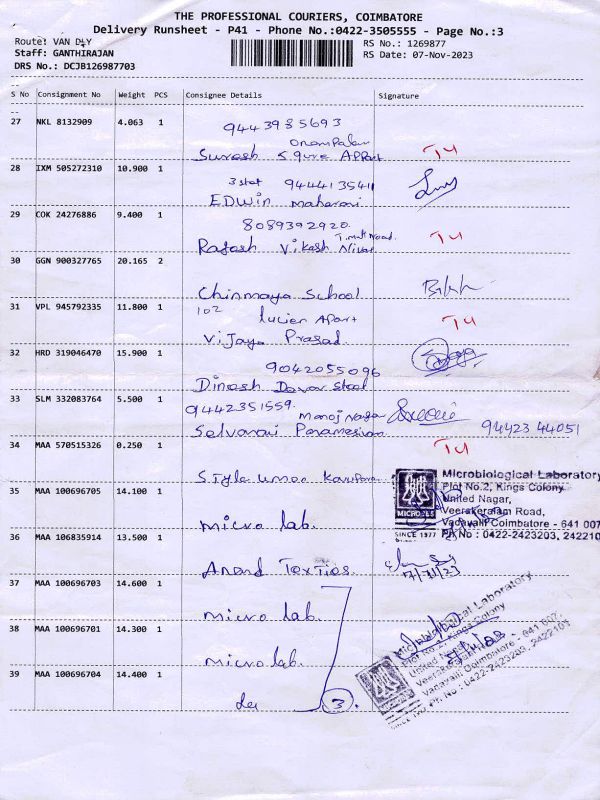 THE PROFESSIONAL COURIERS, COIMBATORE
Delivery Runsheet - P41 - Phone No.:0422-3505555 - Page No.:3
Route: VAN DLY
Staff: GANTHIRAJAN
DRS No.: DCJB126987703
RS No.: 1269877
RS Date: 07-Nov-2023
S No Consignment No Weight PCS Consignee Details Signature
27 NKL 8132909 4.063 1 9443985693
Suresh Squre Appart TU
28 IXM 505272310 10.900 1 9444135411
EDWin maharani
29 COK 24276886 9.400 1 8089392920
Rajesh Vikash Nivas TU
30 GGN 900327765 20.165 2
Chinmaya School
31 VPL 945792335 11.800 1 102 lucier Apart
Vijaya Prasad TU
32 HRD 319046470 15.900 1 9042055096
Dinesh Davar Steel
33 SLM 332083764 5.500 1 9442351559 manoj Nagar
Selvarai 94423 44051
34 MAA 570515326 0.250 1 TU
35 MAA 100696705 14.100 1
micro lab.
36 MAA 106835914 13.500 1
Anand Textios.
37 MAA 100696703 14.600 1
micro lab.
38 MAA 100696701 14.300 1
micro lab.
39 MAA 100696704 14.400 1
3
Microbiological Laboratory
Plot No.2, Kings Colony
United Nagar,
Veerakeralam Road,
Vadavalli, Coimbatore - 641 007
Ph No : 0422-2423203, 242210
MICROBES
SINCE 1977
7/11/23
Microbiological Laboratory
Plot No.2, Kings Colony
United Nagar
Veerakeralam
Vadavalli, Coimbatore - 641 007.
Ph. No : 0422-2423203, 2422103